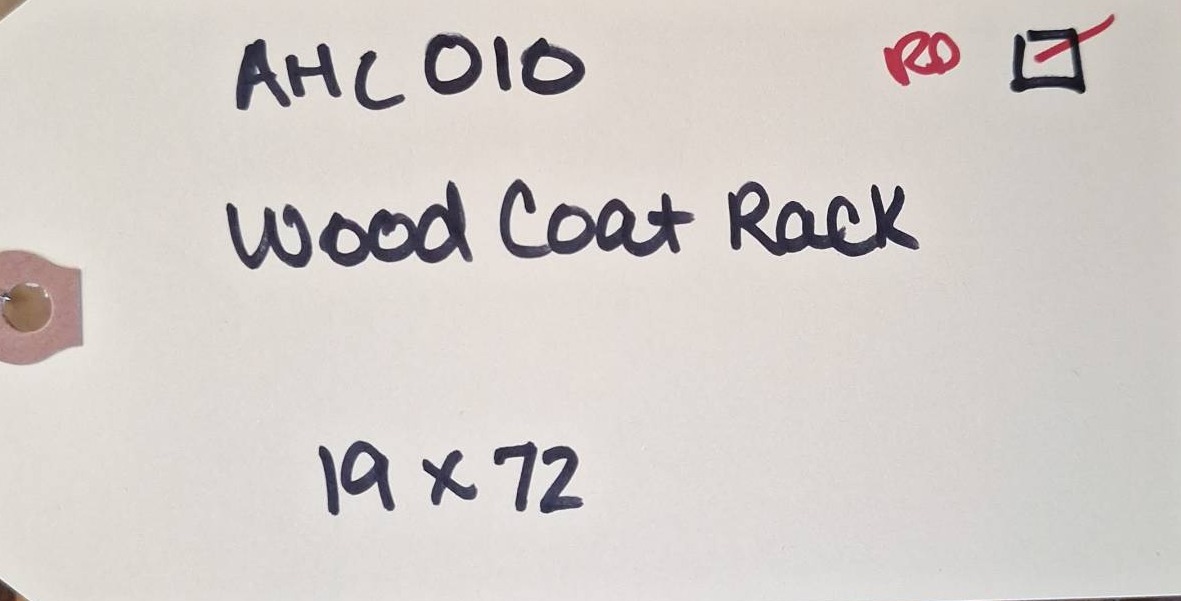 AHC 010 RD ☑
Wood Coat Rack
19 x 72